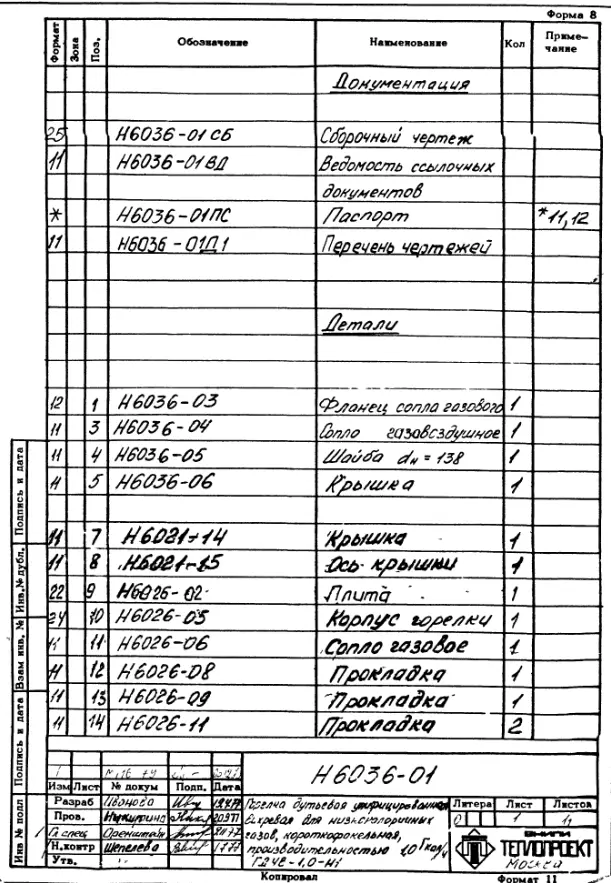 Форма 8
Формат Зона Поз. Обозначение Наименование Кол Приме-
чание
Документация
25 Н6036-01 СБ Сборочный чертеж
11 Н6036-01 ВД Ведомость ссылочных
документов
* Н6036-01ПС Паспорт *11,12
11 Н6036-01Д1 Перечень чертежей
Детали
12 1 Н6036-03 Фланец сопла газового 1
11 3 Н6036-04 Сопло газовоздушное 1
11 4 Н6036-05 Шайба dн = 138 1
11 5 Н6036-06 Крышка 1
11 7 Н6021-14 Крышка 1
11 8 Н6021-15 Ось крышки 1
22 9 Н6026-02 Плита 1
24 10 Н6026-05 Корпус горелки 1
11 11 Н6026-06 Сопло газовое 1
11 12 Н6026-08 Прокладка 1
11 13 Н6026-09 Прокладка 1
11 14 Н6026-11 Прокладка 2
Инв № подл Подпись и дата Взам инв. № Инв.№ дубл. Подпись и дата
Н6036-01
Изм Лист № докум Подп. Дата
Разраб Иванова
Пров. Никитина
Гл спец Оренштайн
Н.контр Шепелева
Утв.
Горелка дутьевая унифицированная
вихревая для низкокалорийных
газов, короткофакельная,
производительностью 1,0 Гкал/ч
Литера Лист Листов
1
ВНИПИ
ТЕПЛОПРОЕКТ
Москва
Копировал Формат 11